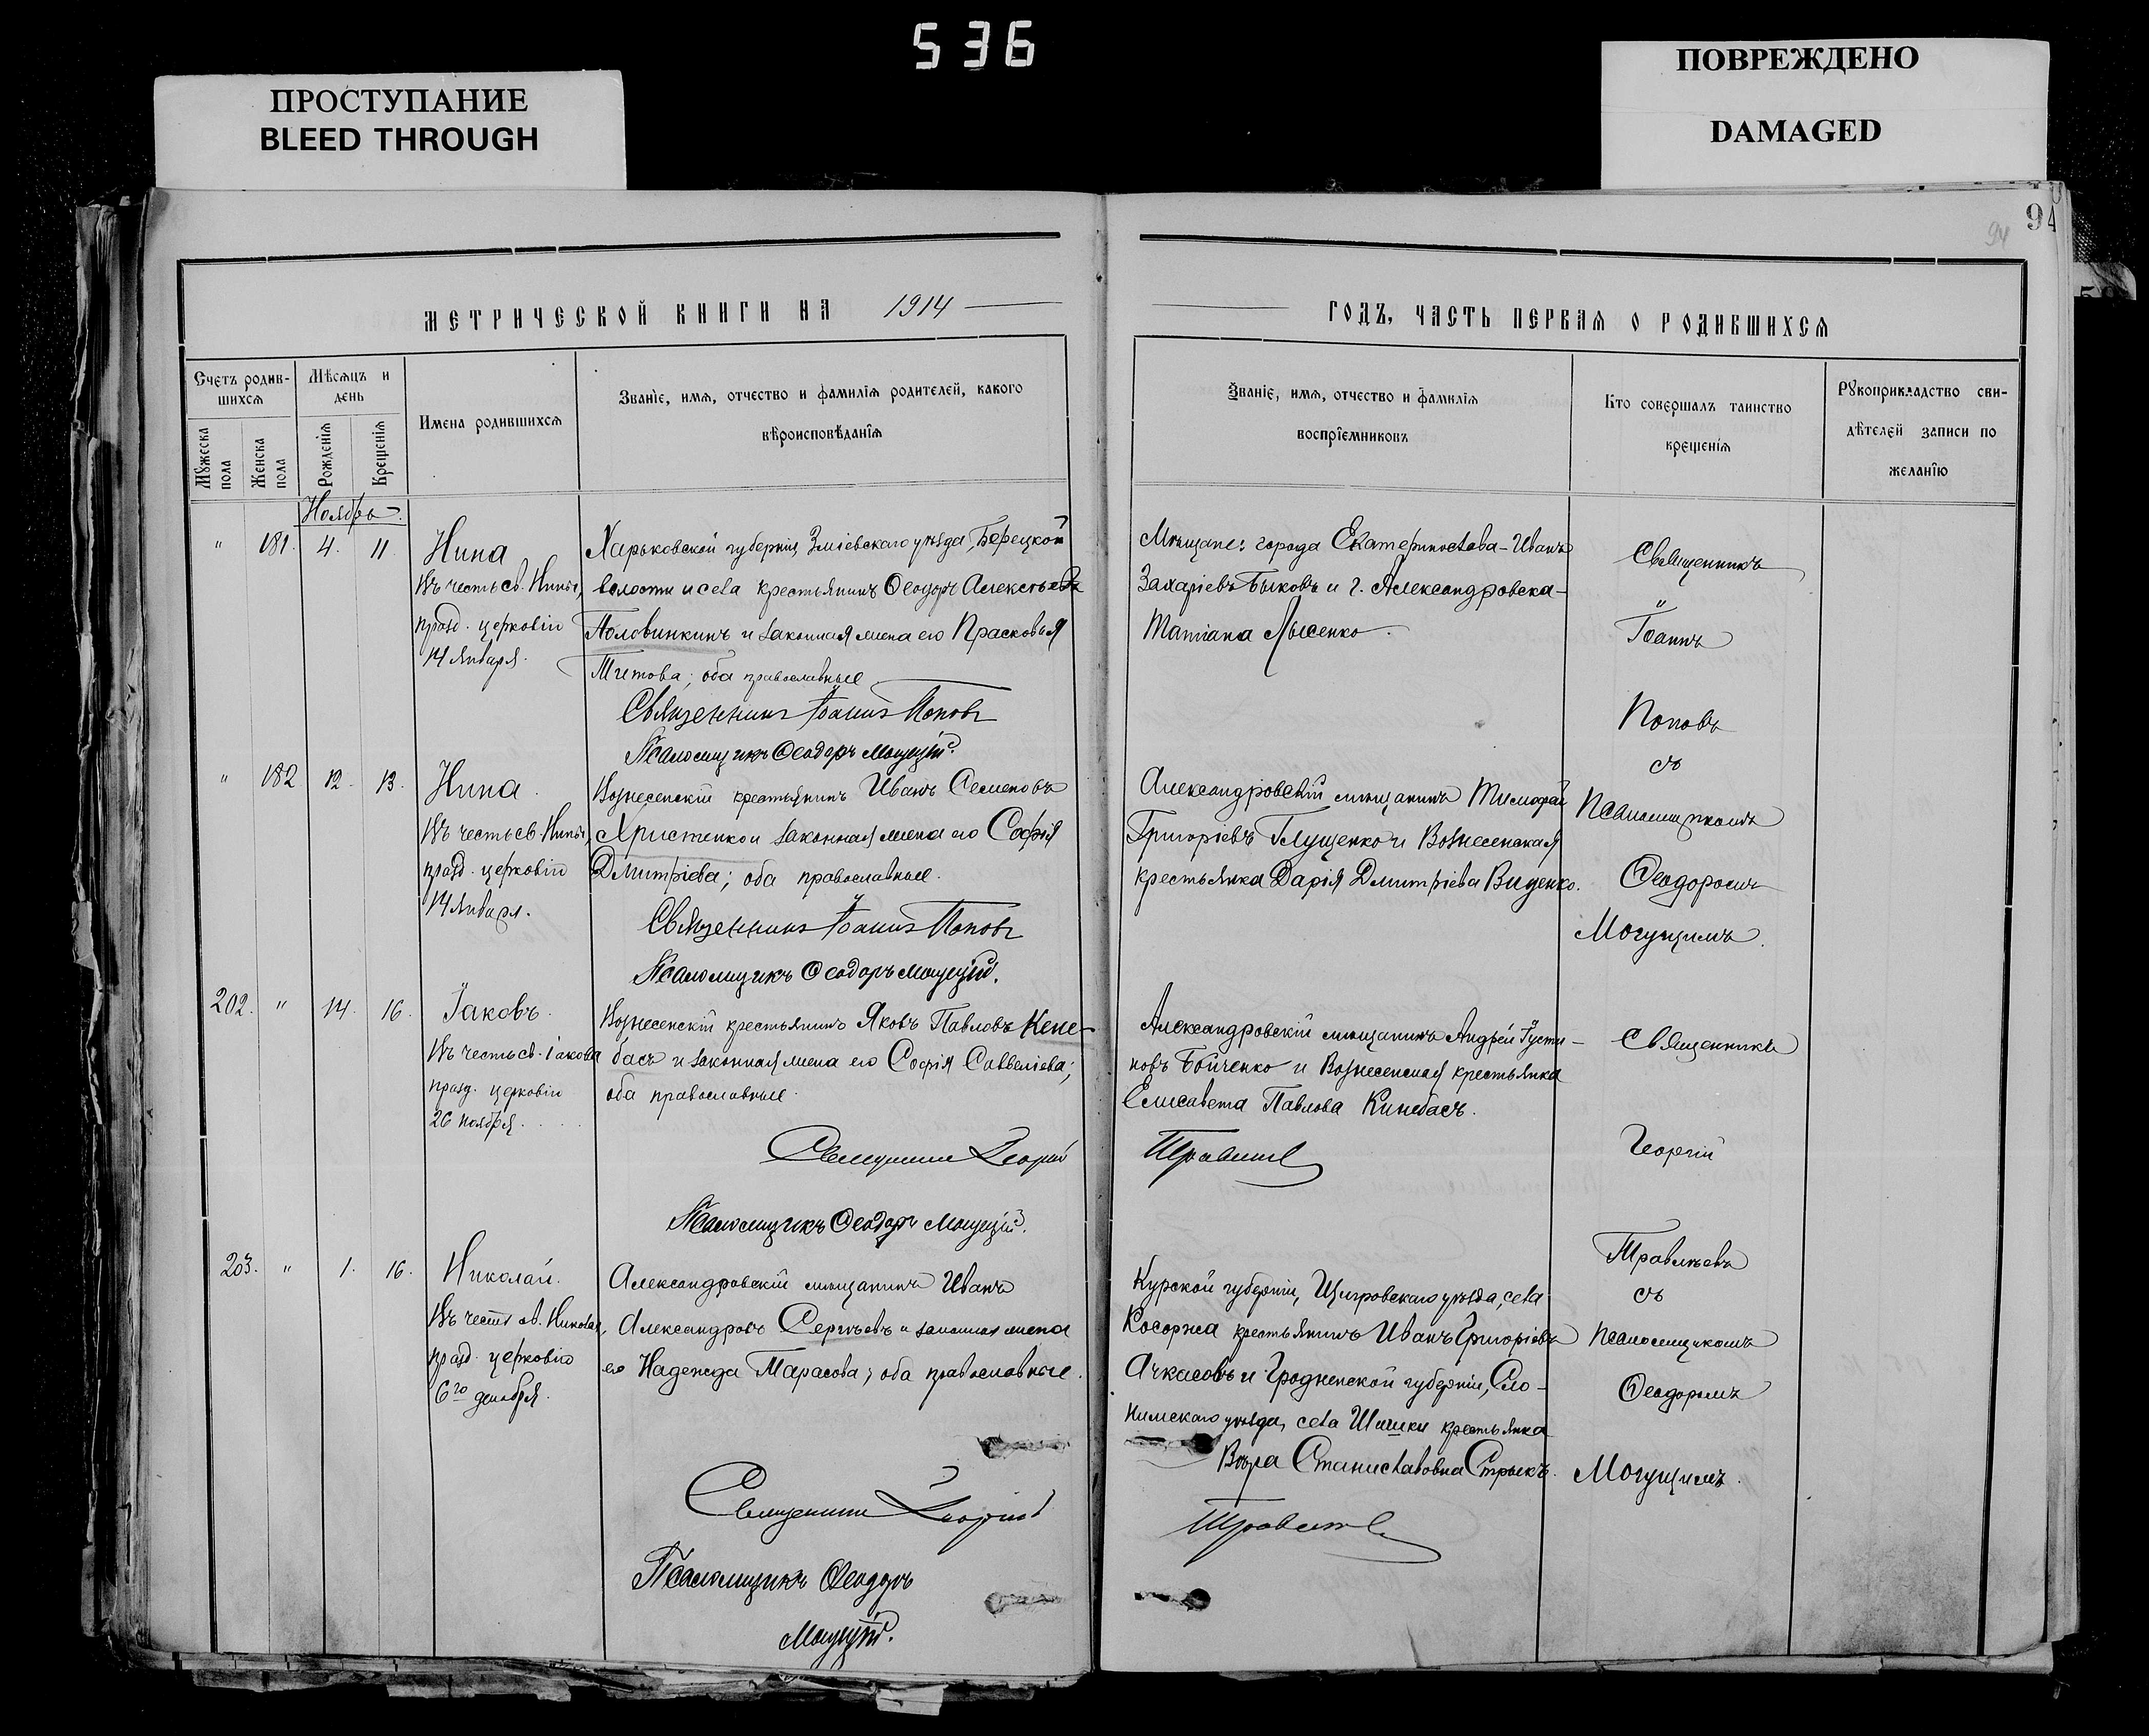 536
ПРОСТУПАНИЕ
BLEED THROUGH
ПОВРЕЖДЕНО
DAMAGED
94
94
МЕТРИЧЕСКОЙ КНИГИ НА 1914
ГОДЪ, ЧАСТЬ ПЕРВАЯ О РОДИВШИХСЯ
Счетъ родив-
шихся
Мѣсяцъ и
день
Мужеска
пола
Женска
пола
Рожденія
Крещенія
Имена родившихся
Званіе, имя, отчество и фамилія родителей, какого
вѣроисповѣданія
Званіе, имя, отчество и фамилія
воспріемниковъ
Кто совершалъ таинство
крещенія
Рукоприкладство сви-
дѣтелей записи по
желанію
Ноябрь
" 181. 4. 11.
Нина
Въ честь св. Нины,
празд. церковію
14 января.
Харьковской губерніи, Зміевскаго уѣзда, Берецкой
волости и села крестьянинъ Ѳеодоръ Алексѣевъ
Половинкинъ и законная жена его Прасковья
Титова; оба православные
Священникъ Іоаннъ Поповъ
Псаломщикъ Ѳеодоръ
Мѣщане: города Екатеринослава - Иванъ
Захаріевъ Быковъ и г. Александровска -
Татіана Лысенко.
Священникъ
Іоаннъ
Поповъ
съ
псаломщикомъ
Ѳеодоромъ
Могущимъ.
" 182 12. 13.
Нина.
Въ честь св. Нины,
празд. церковію
14 января.
Вознесенскій крестьянинъ Иванъ Семеновъ
Христенко и законная жена его Софія
Дмитріева; оба православные.
Священникъ Іоаннъ Поповъ
Псаломщикъ Ѳеодоръ
Александровскій мѣщанинъ Тимофей
Григоріевъ Глущенко и Вознесенская
крестьянка Дарія Дмитріева Виденко.
202. " 14. 16.
Іаковъ.
Въ честь св. Іакова
празд. церковію
26 ноября.
Вознесенскій крестьянинъ Яковъ Павловъ Кене-
басъ и законная жена его Софія Савеліева;
оба православные.
Священникъ Георгій
Псаломщикъ Ѳеодоръ
Александровскій мѣщанинъ Андрей Іусти-
новъ Бойченко и Вознесенская крестьянка
Елисавета Павлова Кинебасъ.
Священникъ
Георгій
Травлѣевъ
съ
псаломщикомъ
Ѳеодоромъ
Могущимъ.
203. " 1. 16.
Николай.
Въ честь св. Николая,
празд. церковію
6го декабря.
Александровскій мѣщанинъ Иванъ
Александровъ Сергѣевъ и законная жена
его Надежда Тарасова; оба православные.
Священникъ Георгій
Псаломщикъ Ѳеодоръ
Курской губерніи, Щигровскаго уѣзда, села
Косоржа крестьянинъ Иванъ Григоріевъ
Ачкасовъ и Гродненской губерніи, Сло-
нимскаго уѣзда, села Шишки крестьянка
Вѣра Станиславовна Стрыкъ.